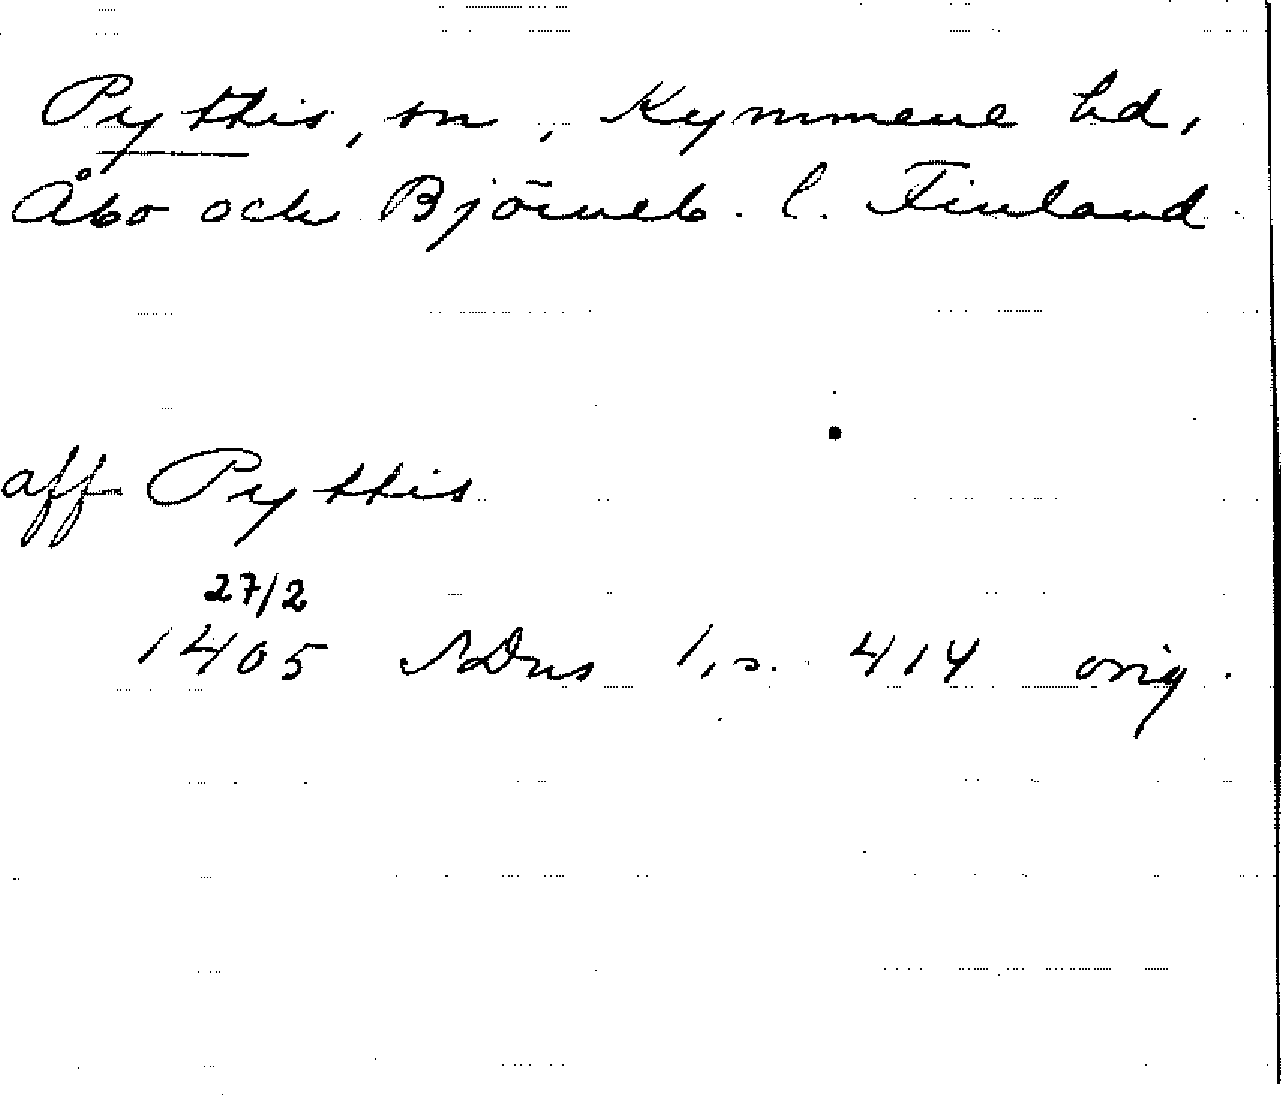 Pyttis, sn, Kymmene hd,
Åbo och Björneb. l. Finland.
aff Pyttis
27/2
1405 SDns 1, s. 414 orig.